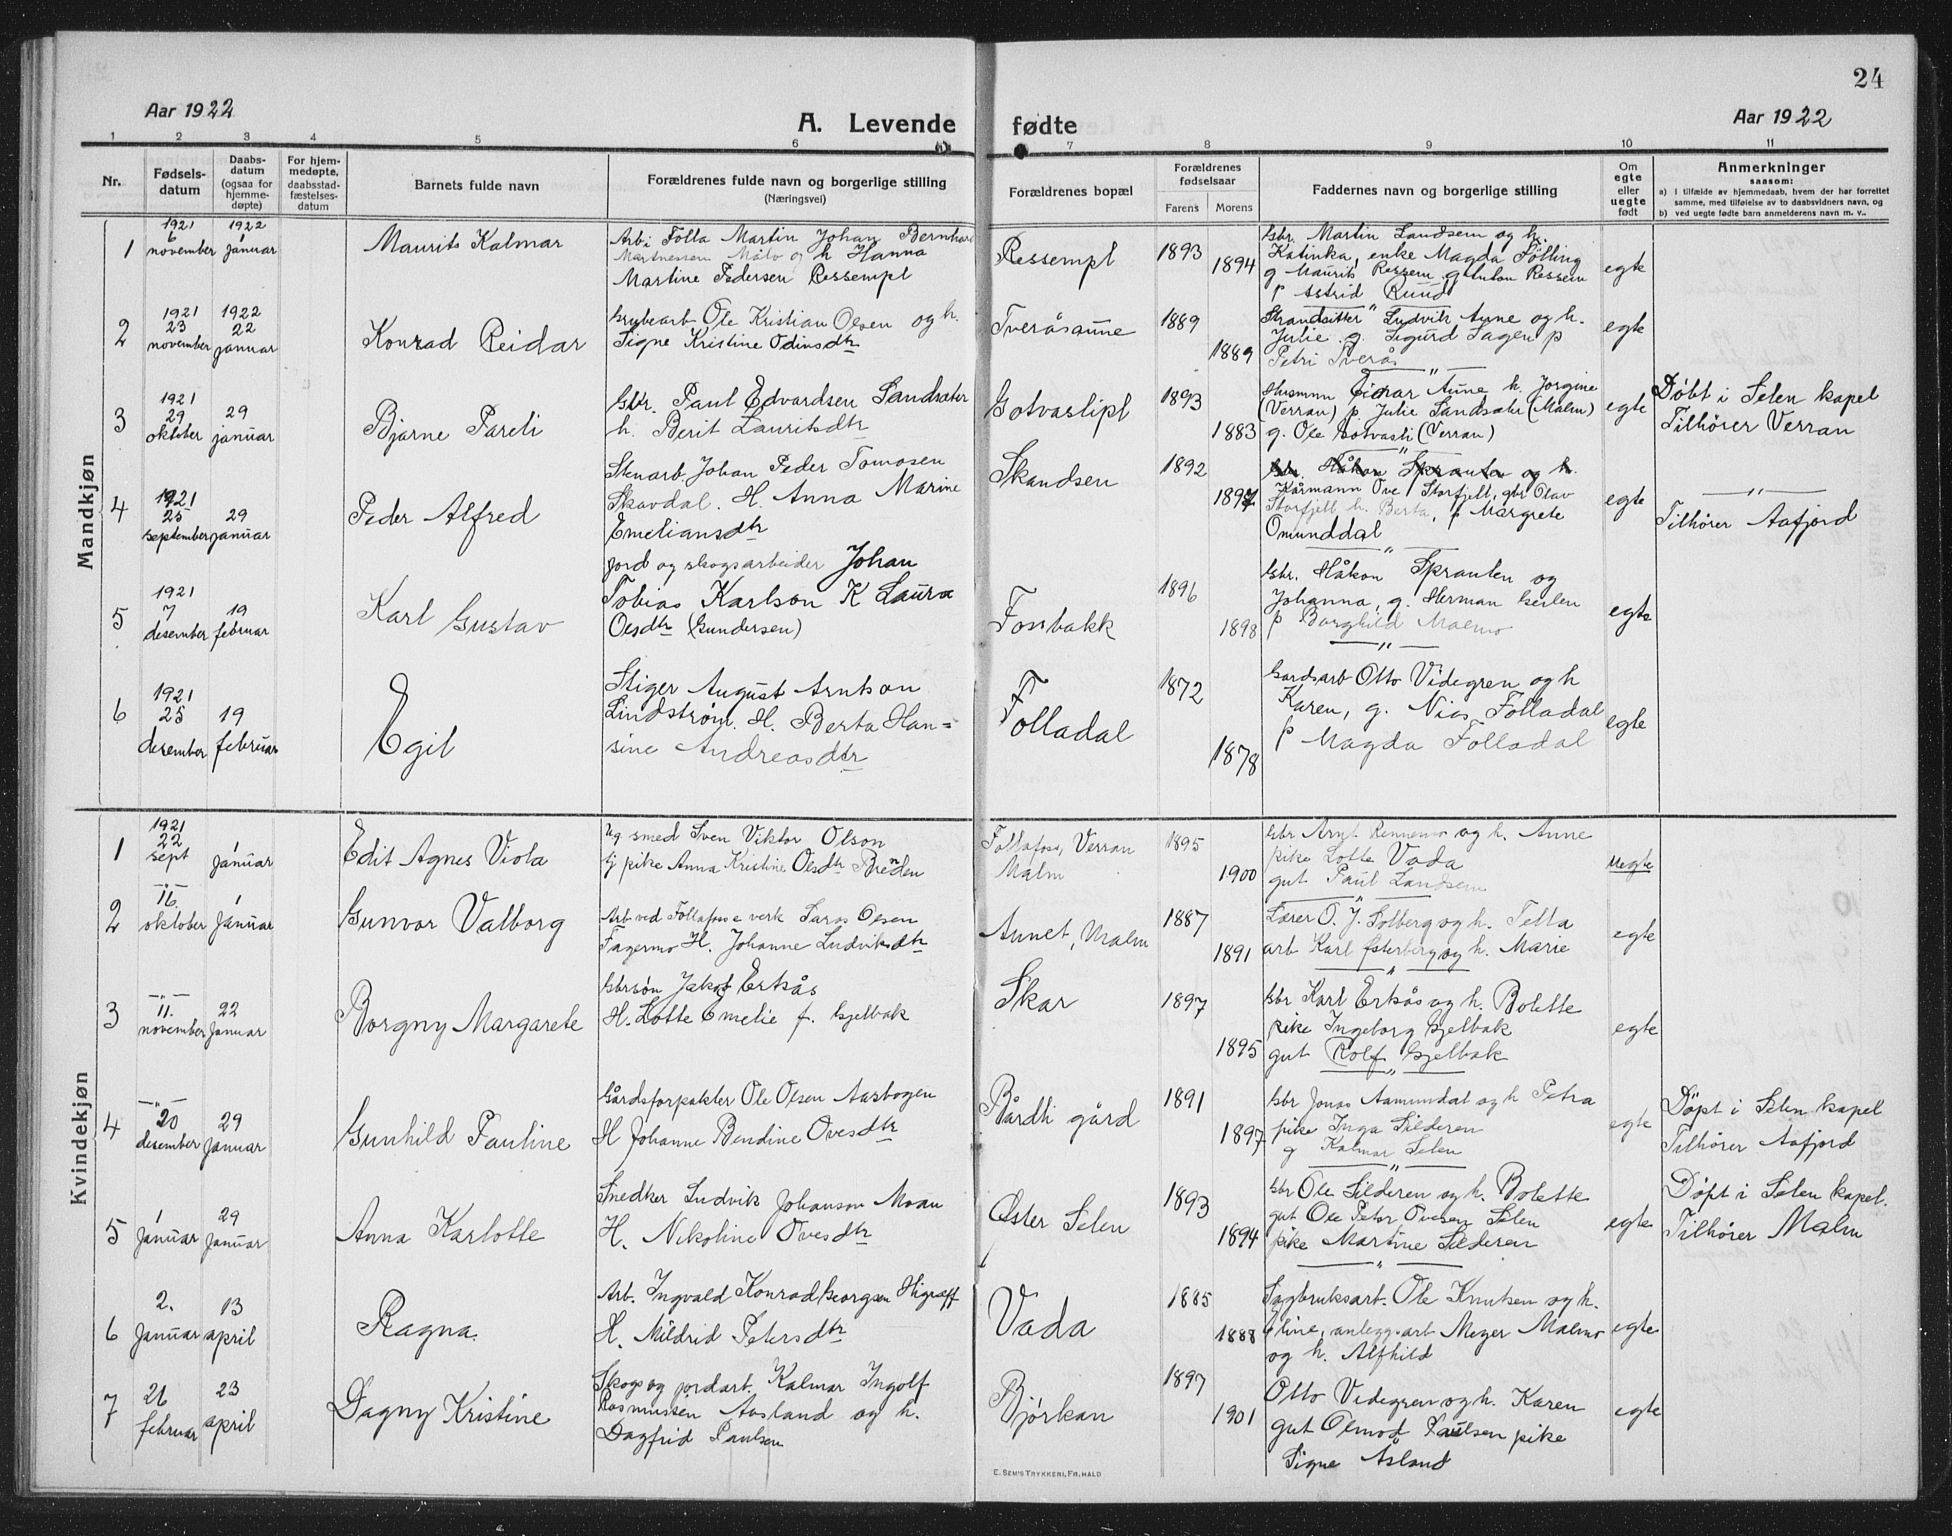 24
Aar 1922
A. Levende fødte
Aar 1922
1 2 3 4 5 6 7 8 9 10 11
Nr.
Fødsels-
datum
Daabs-
datum
(ogsaa for
hjemme-
døpte)
For hjem-
medøpte,
daabsstad-
fæstelses-
datum
Barnets fulde navn
Forældrenes fulde navn og borgerlige stilling
(Næringsvei)
Forældrenes bopæl
Forældrenes
fødselsaar
Farens Morens
Faddernes navn og borgerlige stilling
Om
egte
eller
uegte
født
Anmerkninger
saasom:
a) i tilfælde av hjemmedaab, hvem der har forrettet
samme, med tilføielse av to daabsvidners navn, og
b) ved uegte fødte barn anmelderens navn m. v..
Mandkjøn
1
1921
6
november
1922
1
januar
Maurits Kalmar
Arb i Folla Martin Johan Bernhard
Martinessen Målo og h Hanna
Martine Pedersen Ressempl
Ressempl
1893
1894
Gbr. Martin Landsem og h.
Katinka, enke Magda Følling
g Maurits Ressem g Anton Ressem
p Astrid Ruud
egte
2
1921
23
november
1922
22
januar
Konrad Reidar
Grubearb Ole Kristian Olsen og h.
Signe Kristine Odinsdtr
Tveråsaune
1889
1889
Strandsitter Ludvik Aune og h.
Julie g. Sigurd Sagen p
Petri Tverås
egte
3
1921
29
oktober
29
januar
Bjarne Pareli
Gbr. Paul Edvardsen Sandsæter
h. Berit Lauritsdtr
Gotvaslipl
1893
1883
Husmnn Einar Aune h. Jorgine
(Verran) p. Julie Sandsæter (Malm)
g. Ole Gotvasli (Verran)
egte
Døbt i Selen kapel
Tilhører Verran
4
1921
25
september
29
januar
Peder Alfred
Stenarb. Johan Peder Tomasen
Skavdal. H. Anna Marine
Emeliansdtr
Skandsen
1892
1897
Gbr. Håkon Sprauten og h.
Kårmann Ove Storfjell, gbr Olav
Storfjell h. Berta, p Margrete
Omunddal
egte
— " —
Tilhører Aafjord
5
1921
7
desember
19
februar
Karl Gustav
jord og skogsarbeider Johan
Tobias Karlson K Laura
Olsdtr (Gundersen)
Fossbakk
1896
1898
Gbr. Håkon Sprauten og
Johanna, g. Herman Gerlen
p Borghild Malmo
egte
6
1921
25
desember
19
februar
Egil
Stiger August Arntson
Lindstrøm. H. Berta Han=
sine Andreasdtr
Folladal
1872
1878
Gardsarb Otto Videgren og h
Karen, g. Nils Folladal
p Magda Folladal
egte
Kvindekjøn
1
1921
22
sept
1
januar
Edit Agnes Viola
Ug smed Sven Viktor Olson
tj pike Anna Kristine Olsdtr Brenden
Follafoss, Verran
Malm
1895
1900
Gbr Arnt Rennemo og h. Anne
pike Lotte Vada
gut Paul Landsem
Uegte
2
— " —
16.
oktober
1
januar
Gunvor Valborg
Arb ved Follafoss e verk Lars Olsen
Fagermo H. Johanne Ludviksdtr
Aunet, Malm
1887
1891
Lærer O. J. Solberg og h. Tella
arb Karl Østerberg og h. Marie
egte
3
— " —
11.
november
22
januar
Borgny Margarete
Gbrsøn Jakob Erksås
H. Lotte Emelie f. Gjelbak
Skar
1897
1895
Gbr Karl Erksås og h. Bolette
pike Ingeborg Gjelbak
gut Rolf Gjelbak
egte
4
— " —
20
desember
29
januar
Gunhild Pauline
Gårdsforpakter Ole Olsen Aasbogen
H Johanne Bendine Ovesdtr
Bårdli gård
1891
1897
Gbr Jonas Aamundal og h Petra
pike Inga Silderen
g Kalmar Selen
egte
Døpt i Selen kapel
Tilhører Aafjord
5
1
januar
29
januar
Anna Karlotte
Snedker Ludvik Johanson Moan
H. Nikoline Ovesdtr
Øster Selen
1893
1894
Gbr Ole Silderen og h. Bolette
gut Ole Peter Ovesen Selen
pike Martine Silderen
egte
Døpt i Selen kapel.
Tilhører Malm
6
2.
januar
13
april
Ragna.
Arb. Ingvald Konrad Georgsen Higraff
H. Mildrid Petersdtr
Vada
1885
1888
Sagbruksarb. Ole Knutsen og h.
Oline, anleggsarb Meyer Malmo
og h. Alfhild
egte
7
26
februar
23
april
Dagny Kristine
Skogs og jordarb. Kalmar Ingolf
Rasmussen Aasland og h.
Dagfrid Paulsen
Bjørkan
1897
1901
Otto Videgren og h. Karen
gut Olmod Paulsen pike
Signe Åsland
egte
E. SEM'S TRYKKERI, FR.HALD